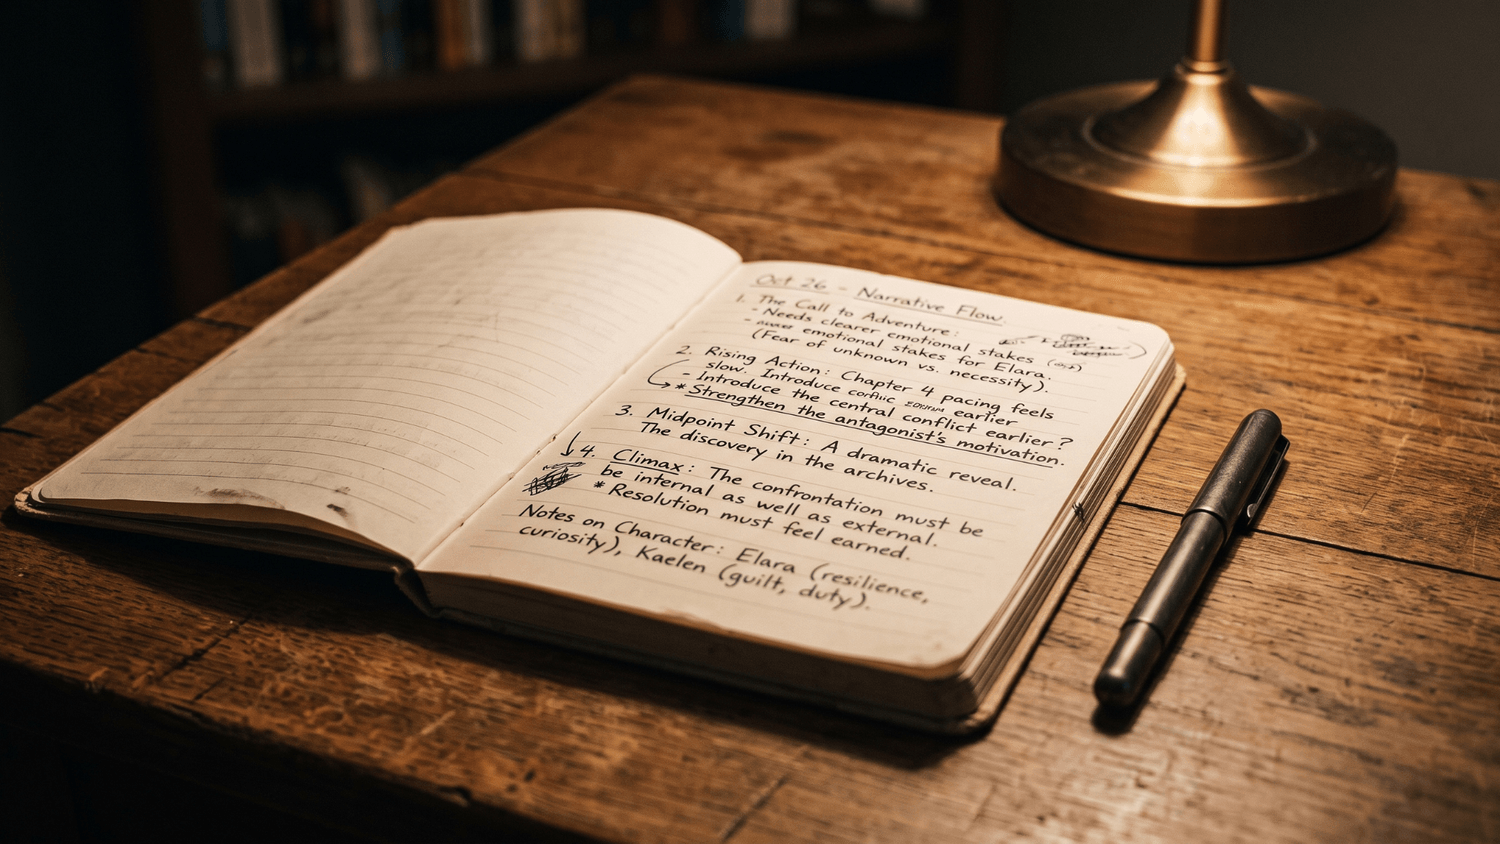 Oct 26 - Narrative Flow.
1. The Call to Adventure:
- Needs clearer emotional stakes
- emotional stakes for Elara.
(Fear of unknown vs. necessity).
2. Rising Action: Chapter 4 pacing feels
slow. Introduce earlier
- Introduce the central conflict earlier?
* Strengthen the antagonist's motivation.
3. Midpoint Shift: A dramatic reveal.
The discovery in the archives.
4. Climax: The confrontation must be
be internal as well as external.
* Resolution must feel earned.
Notes on Character: Elara (resilience,
curiosity), Kaelen (guilt, duty).